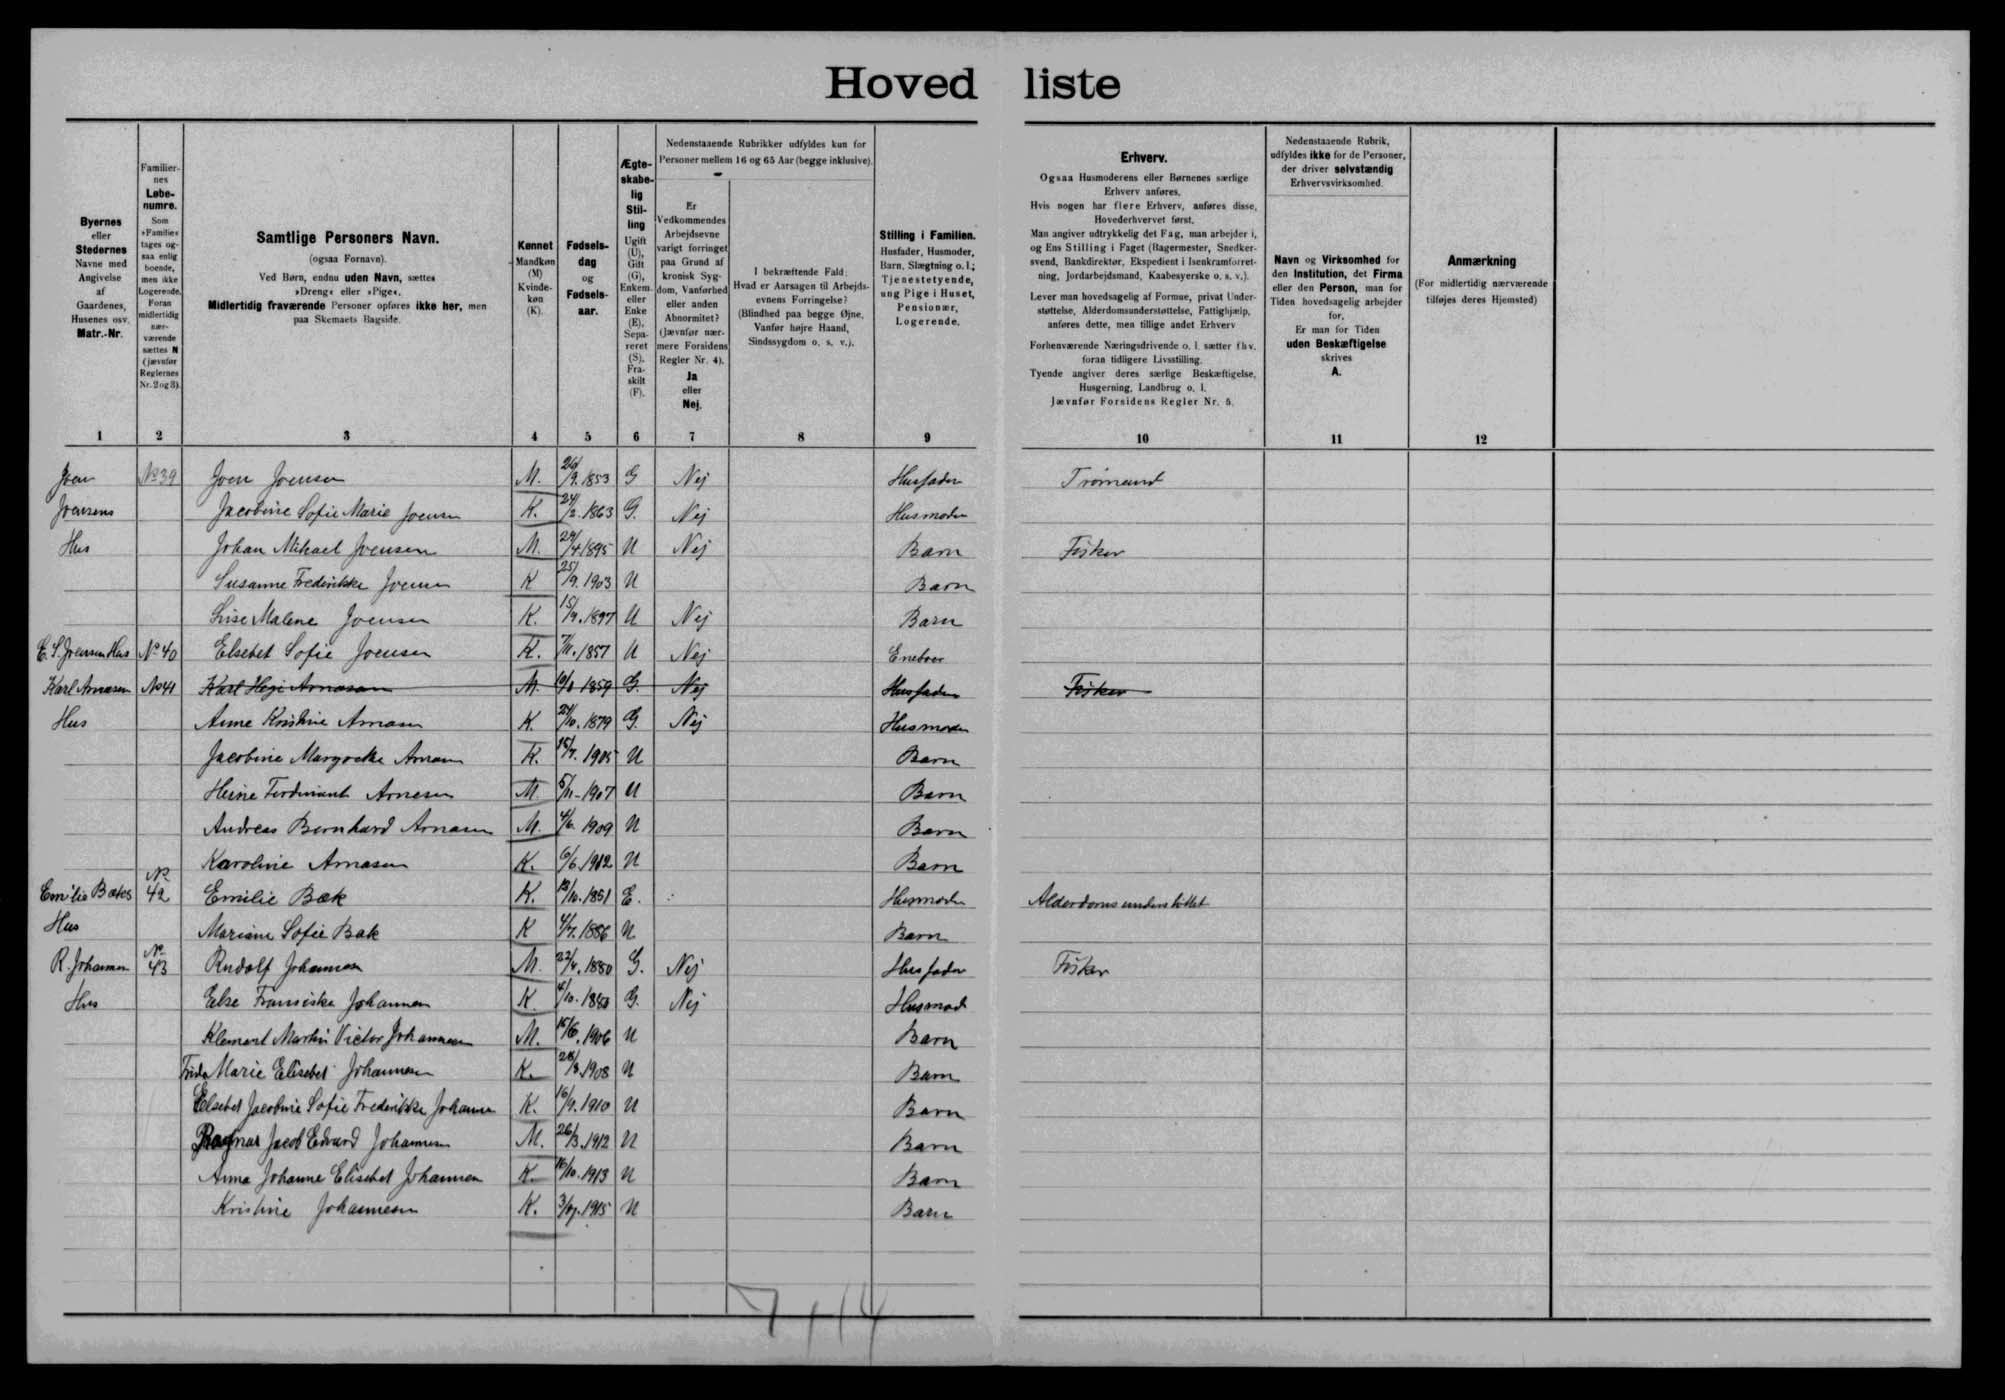 Hovedliste
Nedenstaaende Rubrikker udfyldes kun for
Personer mellem 16 og 65 Aar (begge inklusive).
Byernes
eller
Stedernes
Navne med
Angivelse
af
Gaardenes,
Husenes osv.
Matr.-Nr.
Familier-
nes
Løbe-
numre.
Som
»Familie«
tages og-
saa enlig
boende,
men ikke
Logerende.
Foran
midlertidig
nær-
værende
sættes N
(jævnfør
Reglernes
Nr. 2 og 3).
Samtlige Personers Navn.
(ogsaa Fornavn).
Ved Børn, endnu uden Navn, sættes
»Dreng« eller »Pige«.
Midlertidig fraværende Personer opføres ikke her, men
paa Skemaets Bagside.
Kønnet
Mandkøn
(M)
Kvinde-
køn
(K).
Fødsels-
dag
og
Fødsels-
aar.
Ægte-
skabe-
lig
Stil-
ling
Ugift
(U),
Gift
(G),
Enkem.
eller
Enke
(E),
Sepa-
reret
(S),
Fra-
skilt
(F).
Er
Vedkommendes
Arbejdsevne
varigt forringet
paa Grund af
kronisk Syg-
dom, Vanførhed
eller anden
Abnormitet?
(Jævnfør nær-
mere Forsidens
Regler Nr. 4).
Ja
eller
Nej.
I bekræftende Fald:
Hvad er Aarsagen til Arbejds-
evnens Forringelse?
(Blindhed paa begge Øjne,
Vanfør højre Haand,
Sindssygdom o. s. v.).
Stilling i Familien.
Husfader, Husmoder,
Barn, Slægtning o. l.;
Tjenestetyende,
ung Pige i Huset,
Pensionær,
Logerende.
Erhverv.
Ogsaa Husmoderens eller Børnenes særlige
Erhverv anføres.
Hvis nogen har flere Erhverv, anføres disse,
Hovederhvervet først.
Man angiver udtrykkelig det Fag, man arbejder i,
og Ens Stilling i Faget (Bagermester, Snedker-
svend, Bankdirektør, Ekspedient i Isenkramforret-
ning, Jordarbejdsmand, Kaabesyerske o. s. v.).
Lever man hovedsagelig af Formue, privat Under-
støttelse, Alderdomsunderstøttelse, Fattighjælp,
anføres dette, men tillige andet Erhverv
Forhenværende Næringsdrivende o. l. sætter fhv.
foran tidligere Livsstilling.
Tyende angiver deres særlige Beskæftigelse,
Husgerning, Landbrug o. l.
Jævnfør Forsidens Regler Nr. 5.
Nedenstaaende Rubrik,
udfyldes ikke for de Personer,
der driver selvstændig
Erhvervsvirksomhed.
Navn og Virksomhed for
den Institution, det Firma
eller den Person, man for
Tiden hovedsagelig arbejder
for.
Er man for Tiden
uden Beskæftigelse
skrives
A.
Anmærkning
(For midlertidig nærværende
tilføjes deres Hjemsted)
1 2 3 4 5 6 7 8 9 10 11 12
Joen No 39 Joen Joensen M. 26/9. 1853 G Nej Husfader
Joensens Jacobine Sofie Marie Joensen K. 24/2. 1863 G. Nej Husmoder
Hus Johan Mikael Joensen M. 29/4 1895 U Nej Barn Fisker
Susanne Frederikke Joensen K 25/9. 1903 U Barn
Lise Malene Joensen K. 1897 U Nej Barn
E. S. Joensen Hus No 40 Elsebet Sofie Joensen K. 7/11. 1857 U Nej Eneboer
Karl Arnasen No 41 Karl Arnason M. 1859 G. Nej Husfader Fisker
Hus Anne Kristine Arnasen K. 1879 G. Nej Husmoder
Jacobine Margrethe Arnasen K. 15/7. 1905 U Barn
Heine Ferdinant Arnesen M. 5/11-1907 U Barn
Andreas Bernhard Arnasen M. 4/6. 1909 U Barn
Karoline Arnasen K. 6/6. 1912 U Barn
Emilie Bæks No 42 Emilie Bæk K. 12/10. 1851 E. Husmoder Alderdomsunderstøttet
Hus Mariane Sofie Bæk K 4/7. 1886 U Barn
R. Johannesen No 43 Rudolf Johannesen M. 22/4. 1880 G. Nej Husfader Fisker
Hus Else Fransiska Johannesen K. 4/10. 1880 G. Nej Husmod
Klement Martin Victor Johannesen M. 15/6. 1906 U Barn
Frida Marie Elisebet Johannesen K. 28/8. 1908 U Barn
Elsebet Jacobine Sofie Frederikke Johannesen K. 1910 U Barn
Ragnar Jacob Edvard Johannesen M. 26/3. 1912 U Barn
Anna Johanne Elisebet Johannesen K. 16/10. 1913 U Barn
Kristine Johannesen K. 1915 U Barn
7 + 14